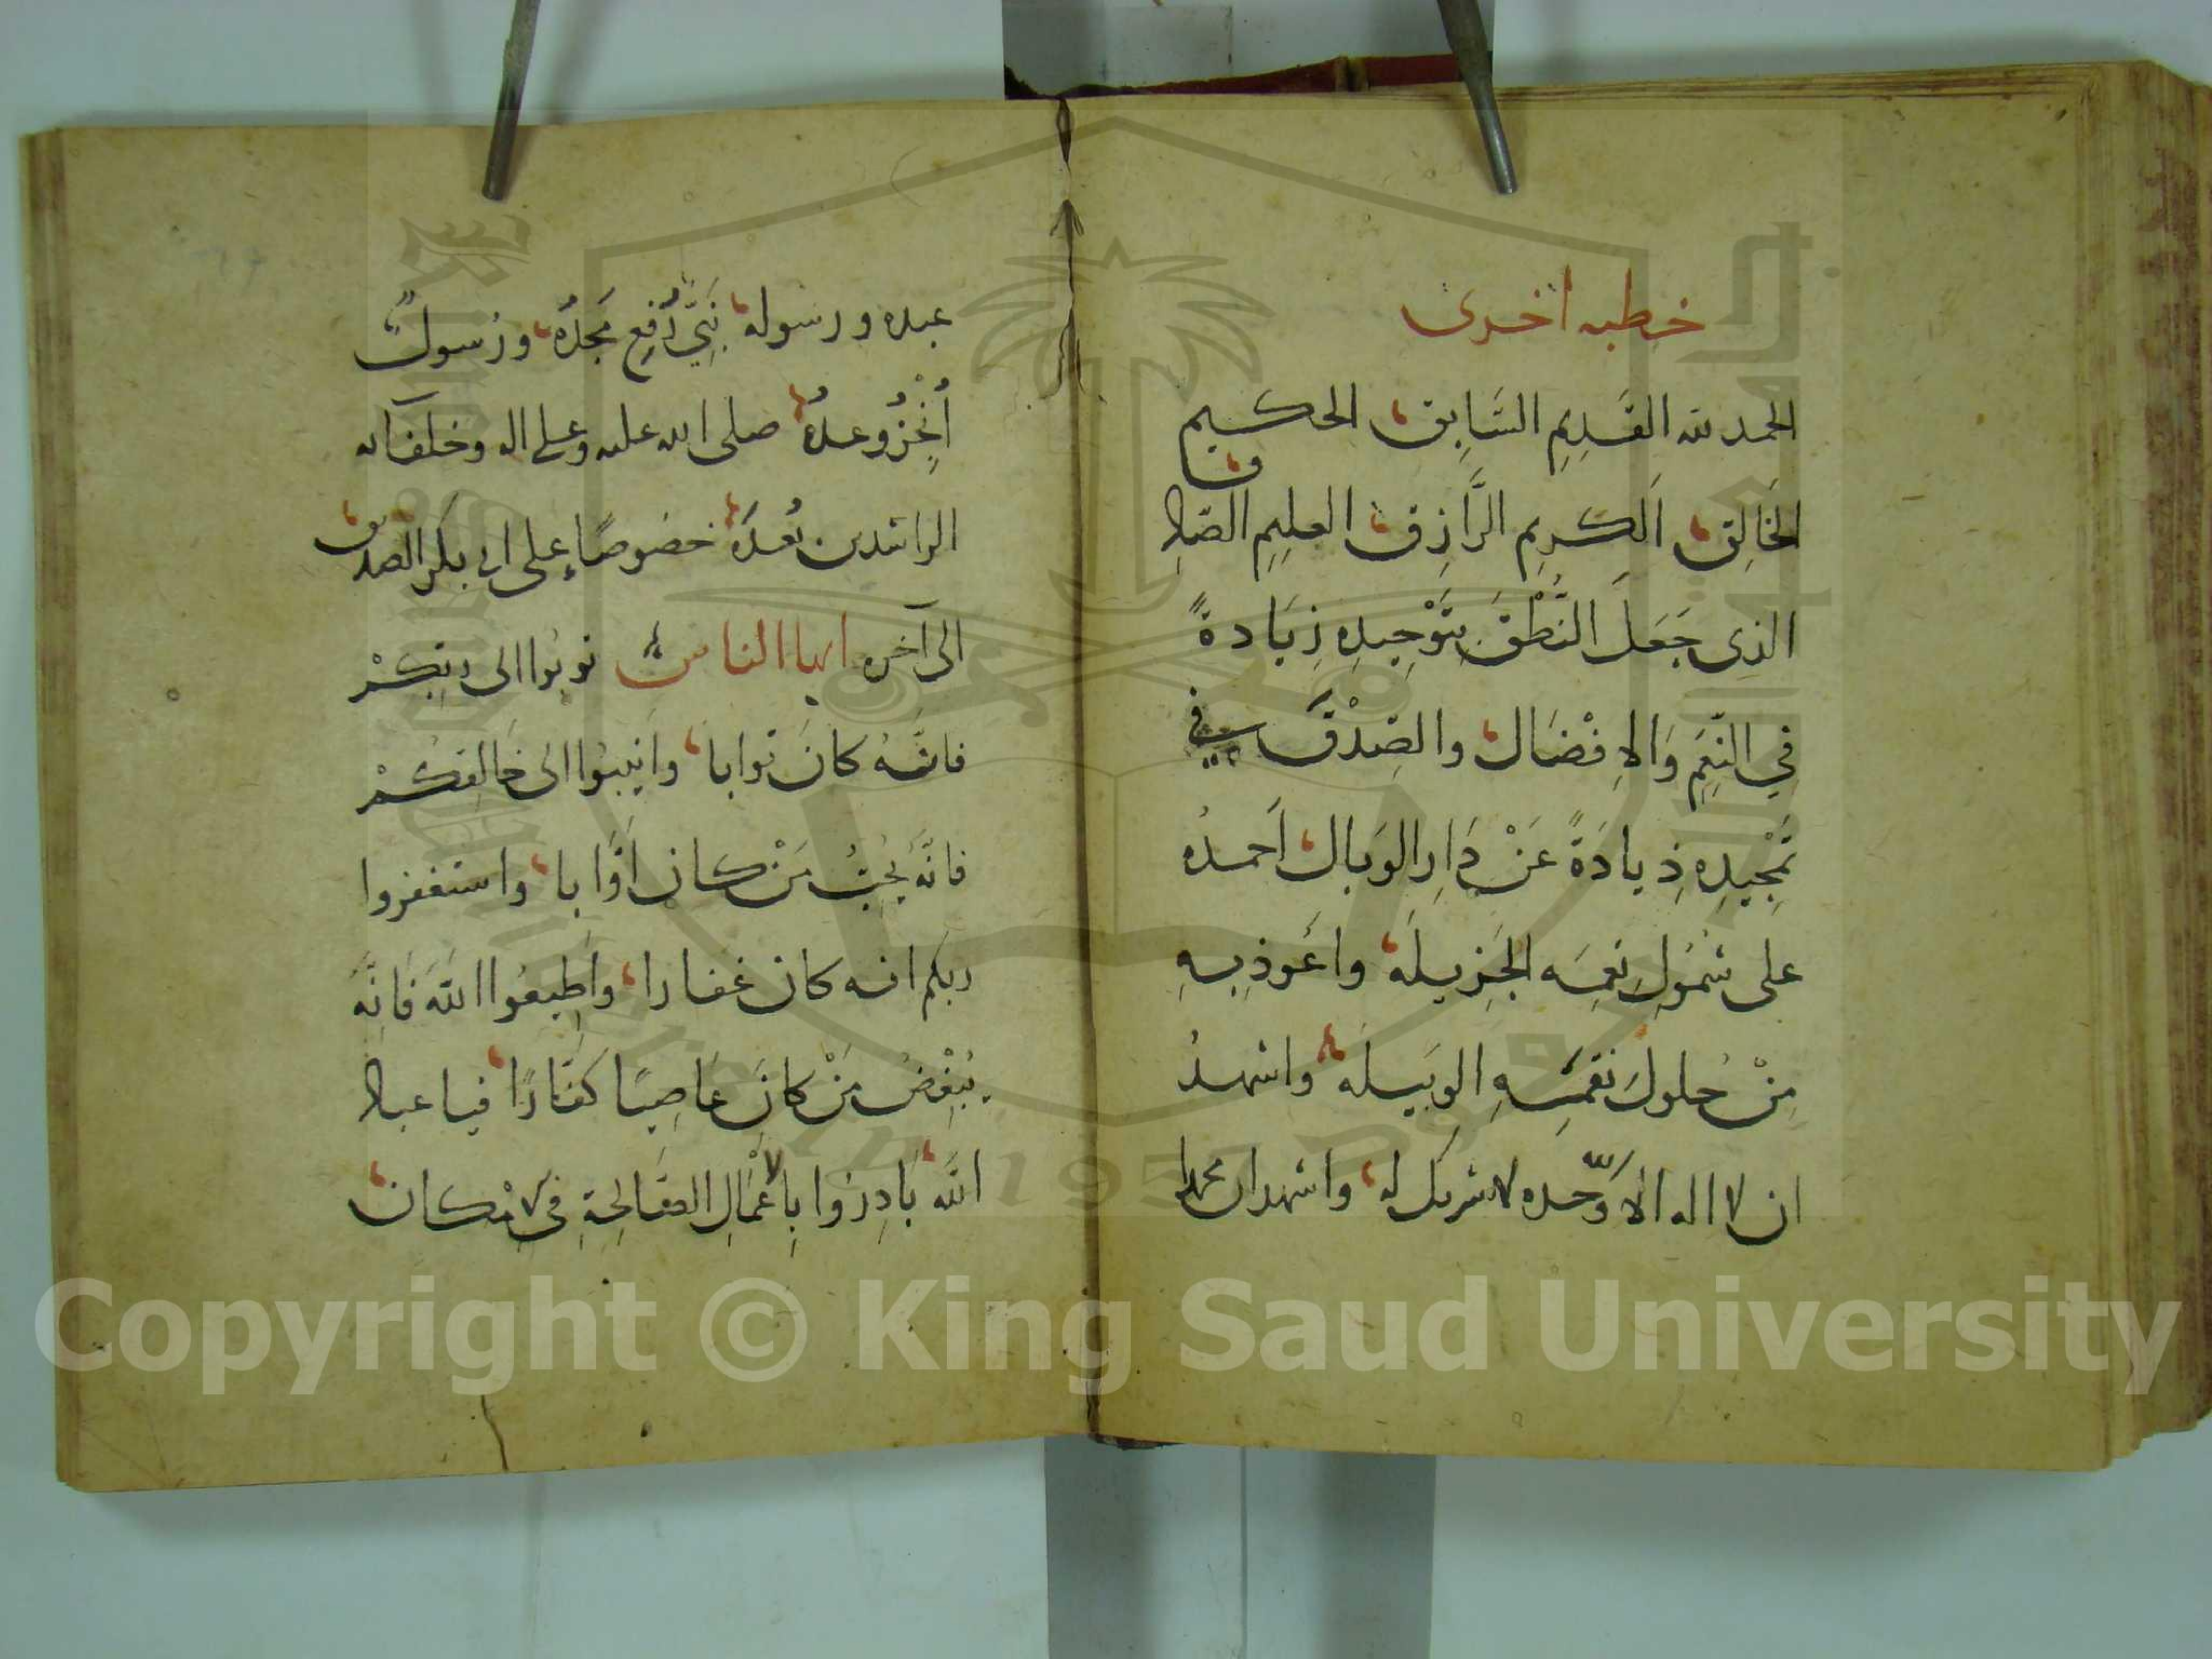 خطبه اخرى
الحمد لله القَدِيمِ السَّابِق الحكيم
الخَالِق الكريم الرَّازِق العليم الصّادق
الذي جَعَلَ النُّطْقَ بِتَوْحِيدِهِ زِيَادةً
في النِّعَمِ وَالاِفْضَال والصِّدْقَ في
تَمْجِيدِهِ ذيادَةً عَنْ دَارِ الوَبال اَحمدُه
على شُمُولِ نِعَمِه الجَزِيلَة واَعُوذ بِهِ
مِنْ حُلولِ نِقَمِهِ الوَبِيلَة واشهدُ
ان لا اله الا الله وَحده لا شريك له واشهد ان محمدا
عبده ورسوله نَبِيٌّ رُفِع مَجْدُهُ ورَسولٌ
اُنْجِزَ وعدُهُ صلى الله عليه وعلى اله وخلفآئه
الراشدين بَعدَهُ خصُوصًا على ابي بكر الصديق
الى آخره ايها الناس توبُوا الى رَبِّكُمْ
فانَّهُ كانَ توابا وانِيبُوا الى خَالِقِكُمْ
فانَّهُ يُحِبُّ مَنْ كان اَوَّابا واستغفروا
ربكم انه كان غفارا واَطِيعُوا اللهَ فَانَّهُ
يُبْغِضُ مَنْ كانَ عَاصِيًا كَفَّارًا فيا عباد
اللهِ بَادِرُوا بِالاَعْمَالِ الصَّالِحَةِ في الاِمْكان
Copyright © King Saud University
1957